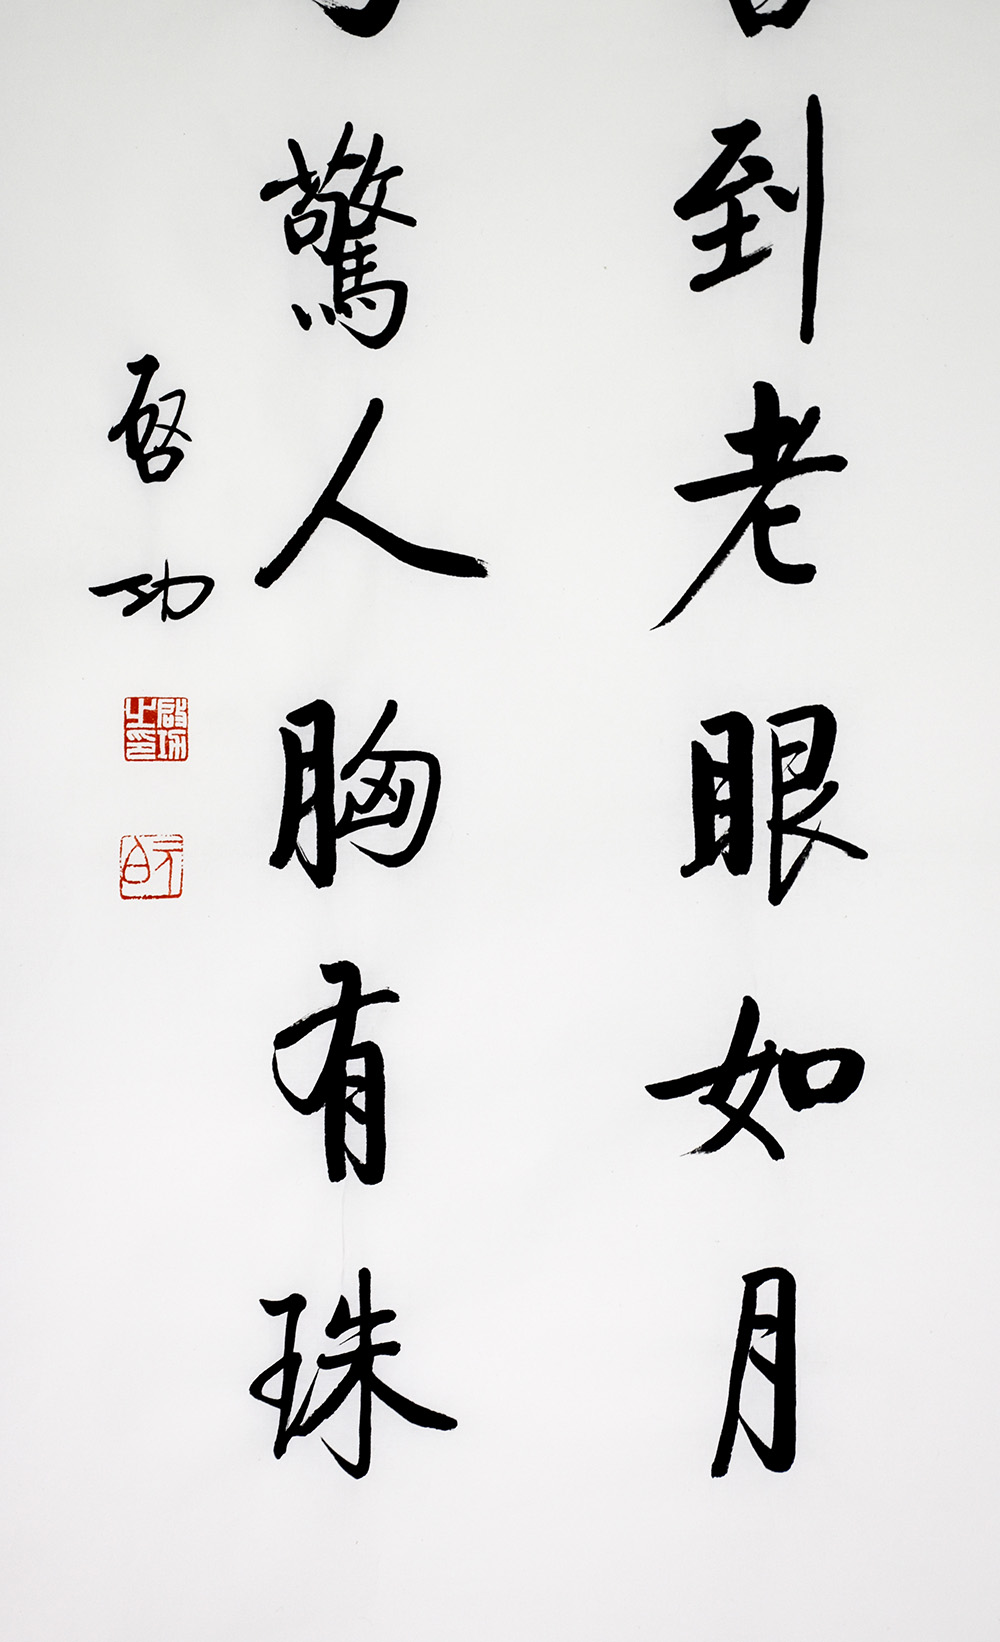 到老眼如月
驚人胸有珠
啓功
啟功之印
元白